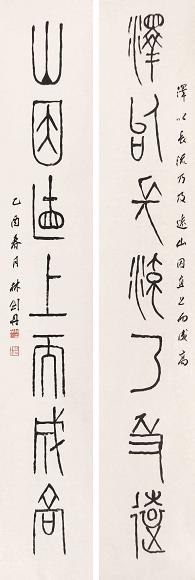 澤以長流乃及遠
山因直上而成高
澤以長流乃及遠山因直上而成高
乙酉春月林劍丹